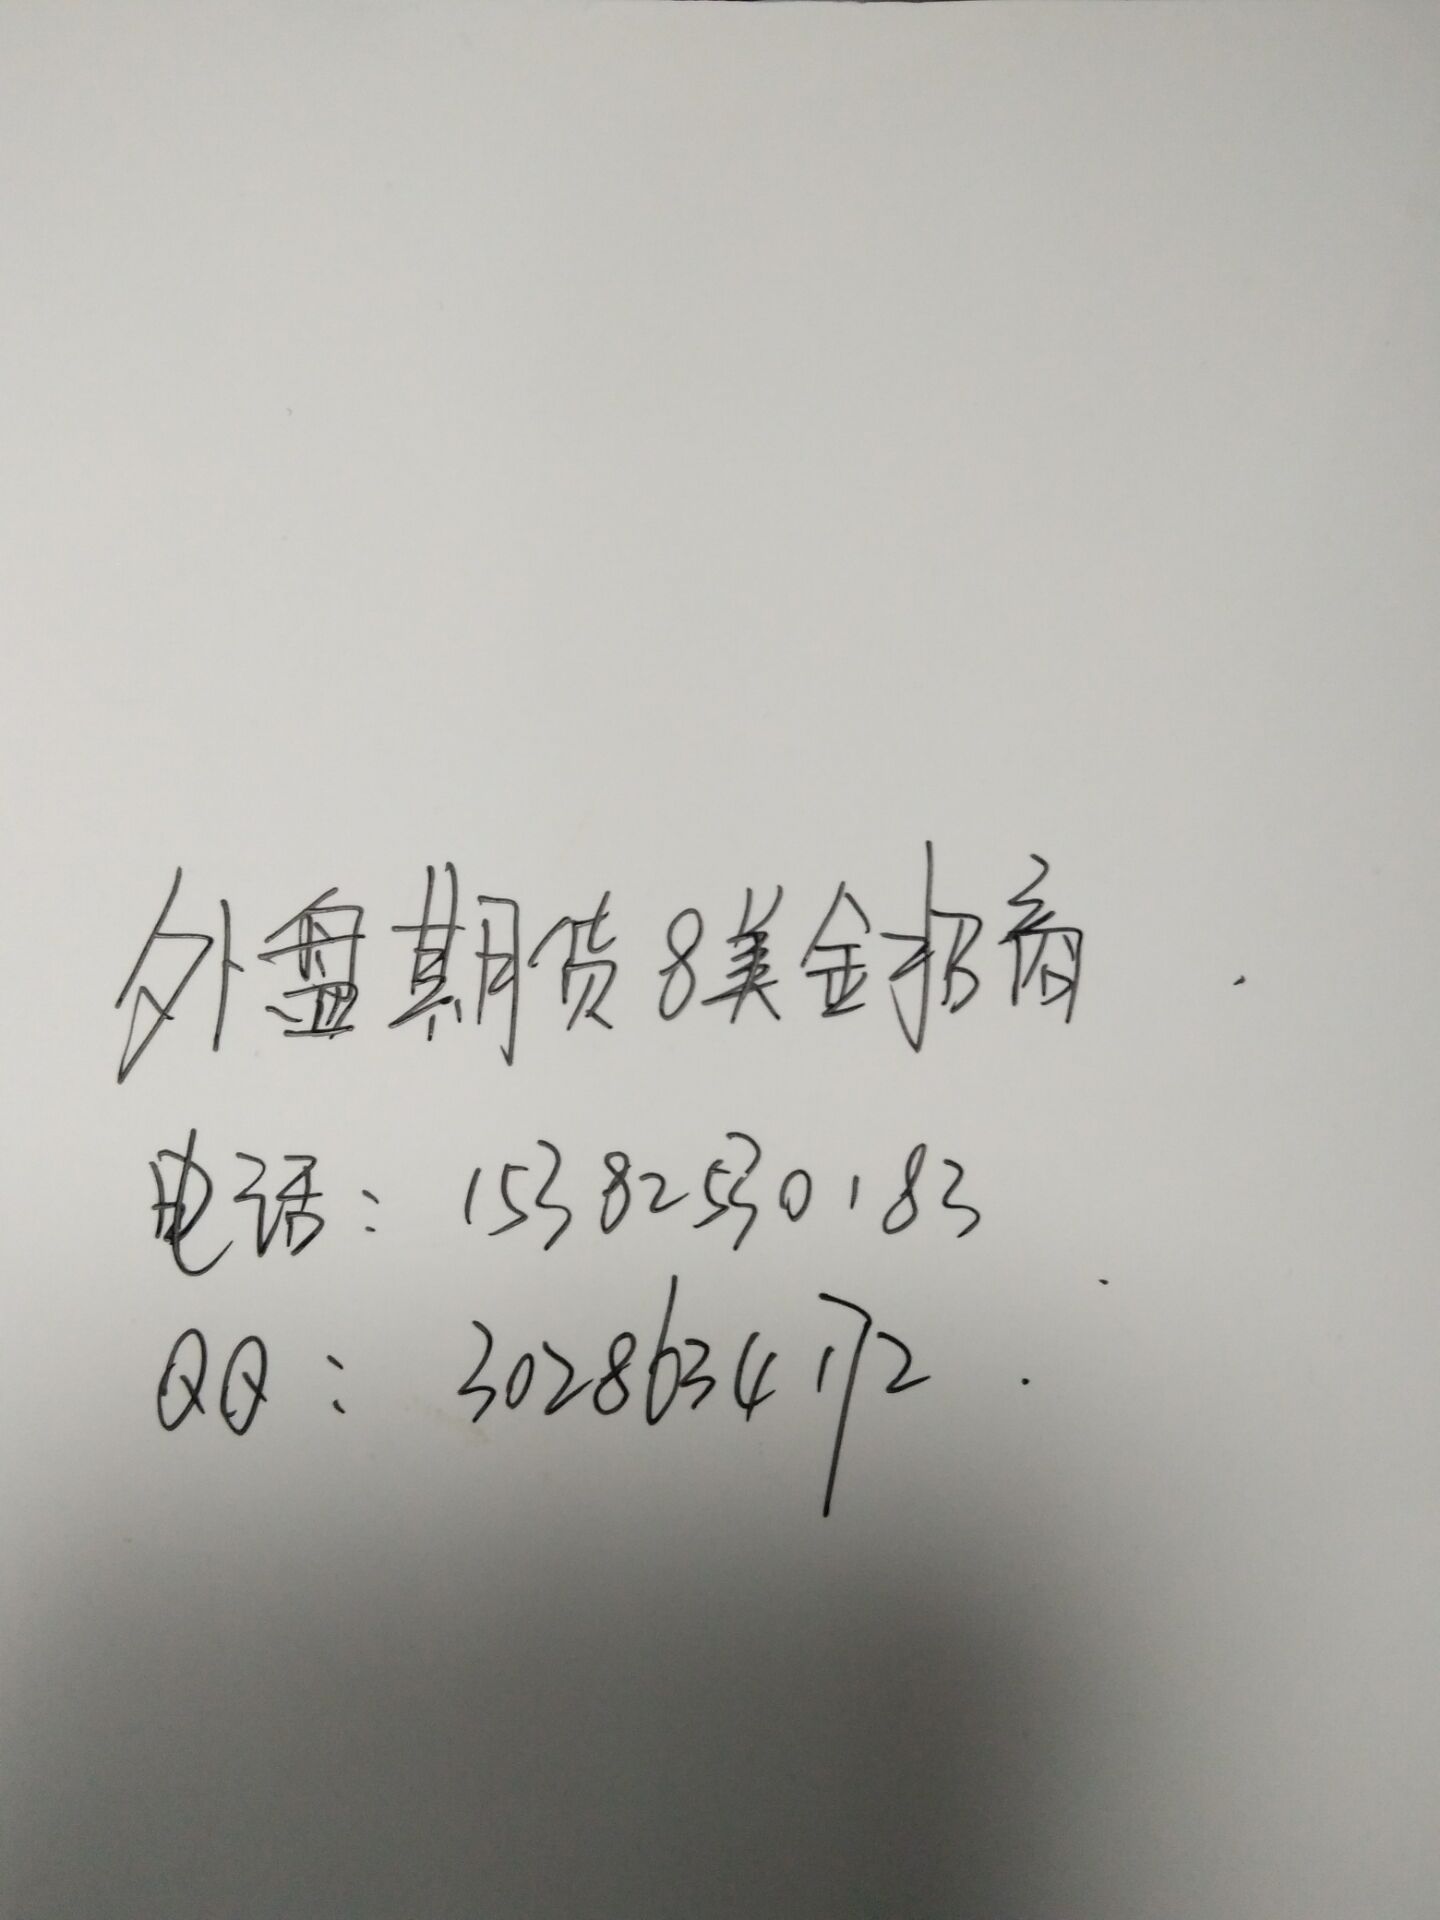 外盘期货8美金招商
电话：15382530183
QQ：3028634172